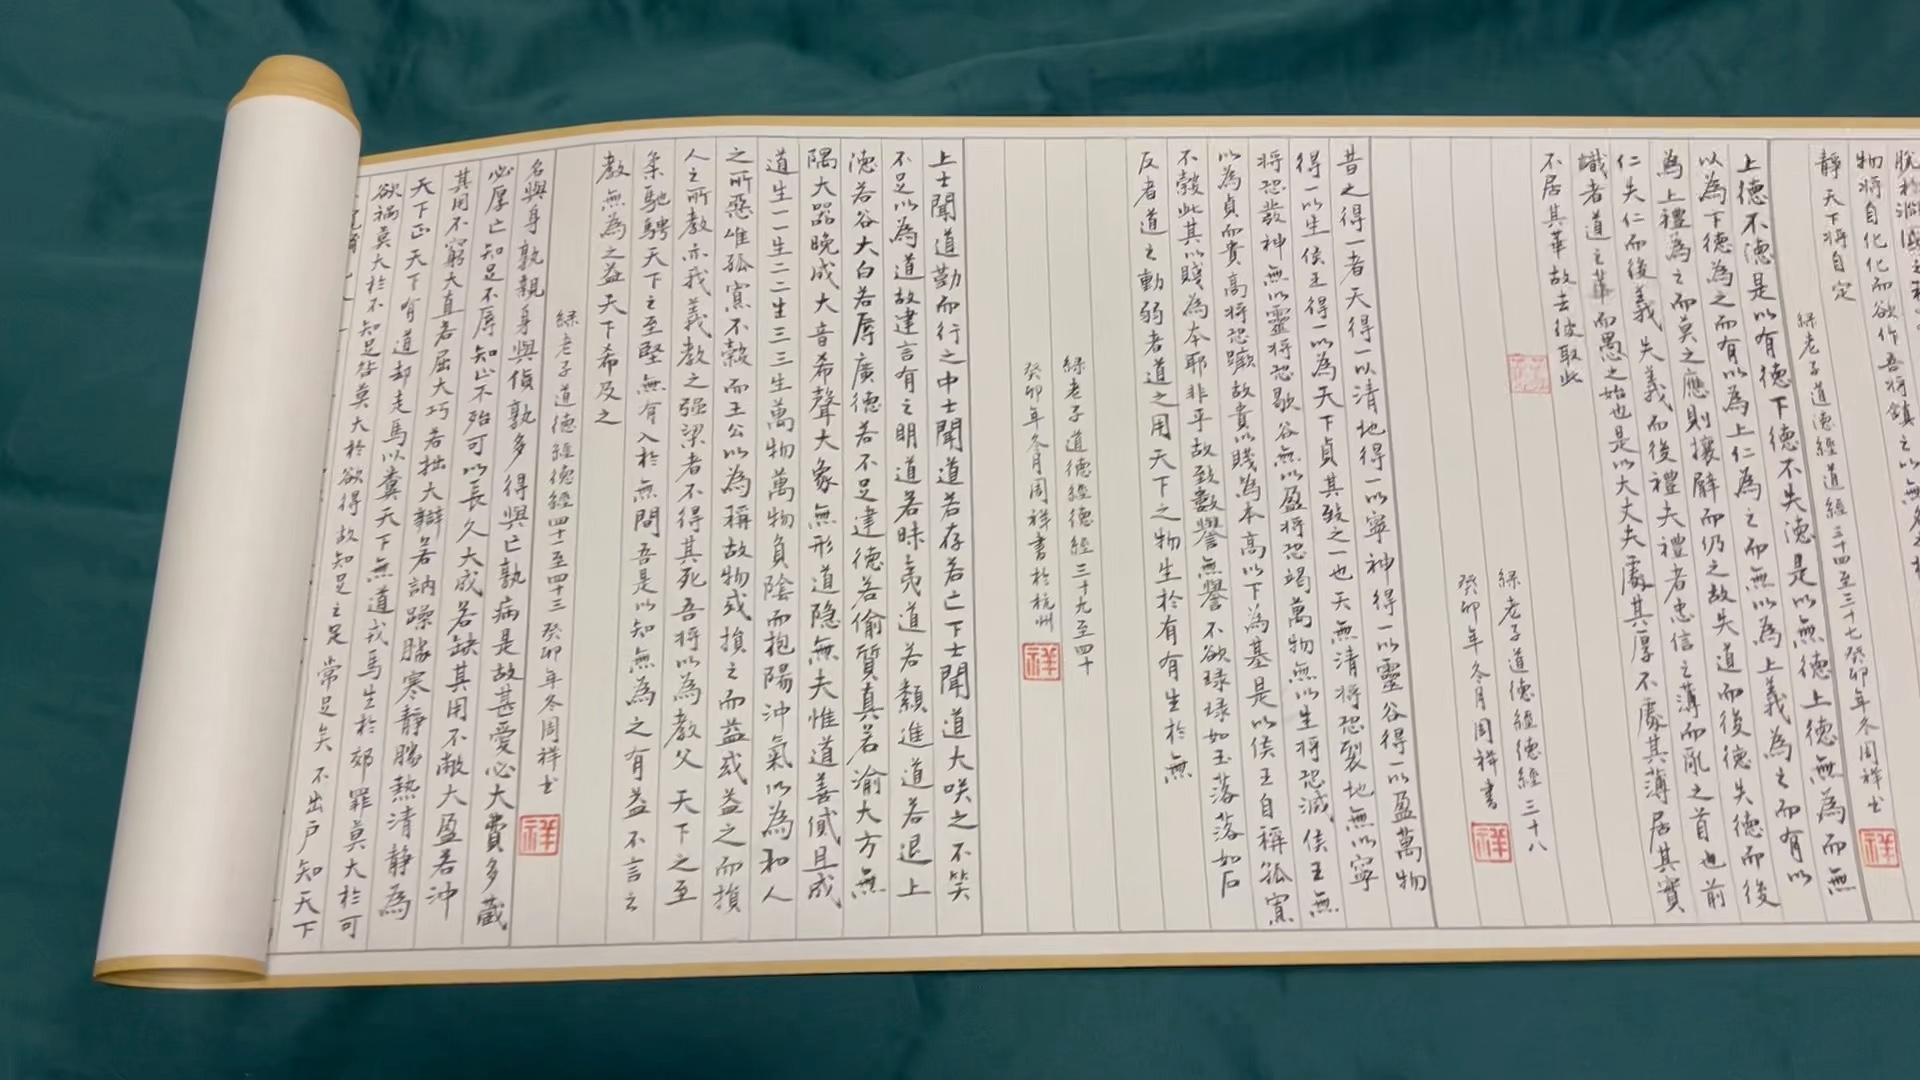 物將自化化而欲作吾將鎮之以無名之樸
靜天下將自定
錄老子道德經道經三十四至三十七癸卯年冬周祥書
祥
上德不德是以有德下德不失德是以無德上德無為而無
以為下德為之而有以為上仁為之而無以為上義為之而有以
為上禮為之而莫之應則攘臂而仍之故失道而後德失德而後
仁失仁而後義失義而後禮夫禮者忠信之薄而亂之首也前
識者道之華而愚之始也是以大丈夫處其厚不處其薄居其實
不居其華故去彼取此
錄老子道德經德經三十八
癸卯年冬月周祥書
祥
昔之得一者天得一以清地得一以寧神得一以靈谷得一以盈萬物
得一以生侯王得一以為天下貞其致之一也天無清將恐裂地無以寧
將恐發神無以靈將恐歇谷無以盈將恐竭萬物無以生將恐滅侯王無
以為貞而貴高將恐蹶故貴以賤為本高以下為基是以侯王自稱孤寡
不穀此其以賤為本耶非乎故致數譽無譽不欲琭琭如玉落落如石
反者道之動弱者道之用天下之物生於有有生於無
錄老子道德經德經三十九至四十
癸卯年冬月周祥書於杭州
祥
上士聞道勤而行之中士聞道若存若亡下士聞道大咲之不笑
不足以為道故建言有之明道若昧夷道若纇進道若退上
德若谷大白若辱廣德若不足建德若偷質真若渝大方無
隅大器晚成大音希聲大象無形道隐無夫惟道善貸且成
道生一一生二二生三三生萬物萬物負陰而抱陽沖氣以為和人
之所惡唯孤寡不穀而王公以為稱故物或損之而益或益之而損
人之所教亦我義教之强梁者不得其死吾將以為教父天下之至
柔馳騁天下之至堅無有入於無間吾是以知無為之有益不言之
教無為之益天下希及之
錄老子道德經德經四十一至四十三癸卯年冬周祥书
祥
名與身孰親身與貨孰多得與亡孰病是故甚愛必大費多藏
必厚亡知足不辱知止不殆可以長久大成若缺其用不敝大盈若沖
其用不窮大直若屈大巧若拙大辯若訥躁勝寒靜勝熱清靜為
天下正天下有道却走馬以糞天下無道戎馬生於郊罪莫大於可
欲禍莫大於不知足咎莫大於欲得故知足之足常足矣不出戶知天下